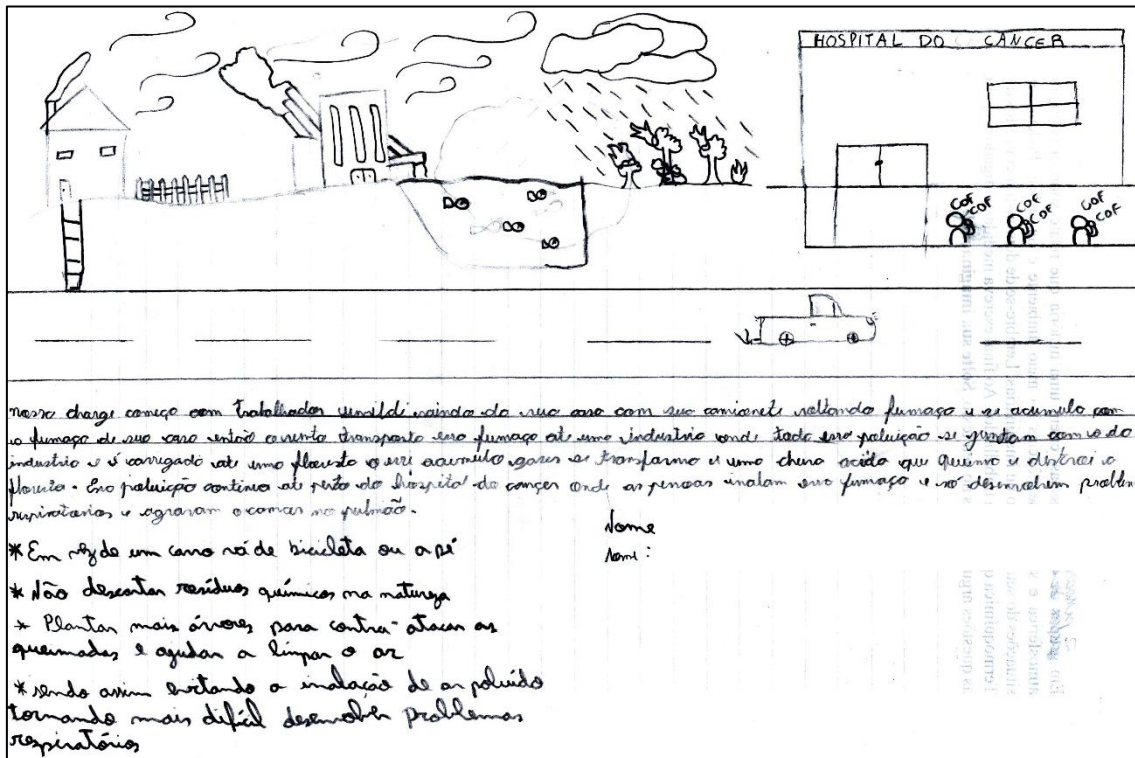 HOSPITAL DO CÂNCER
COF COF
COF COF
COF COF
nossa charge começo com trabalhador saindo da sua casa com sua camionete soltando fumaça e se acumulo com
a fumaça de sua casa então o vento transporta essa fumaça até uma industria onde toda essa poluição se juntam com a da
industria e é carregado até uma floresta e esse acumulo gases se transforma e uma chuva acida que queima e a
floresta. Essa poluição continua até perto do hospital do cançer onde as pessoas inalam essa fumaça e só desenvolvem problemas
respiratorios e agravam o cancer no pulmão.
Nome
Nome:
* Em vez de um carro vá de bicicleta ou a pé
* Não descartar resíduos químicos na natureza
* Plantar mais árvores para contra-atacar as
queimadas e ajudar a limpar o ar
* sendo assim evitando a inalação de ar poluído
tornando mais difícil desenvolver problemas
respiratórios